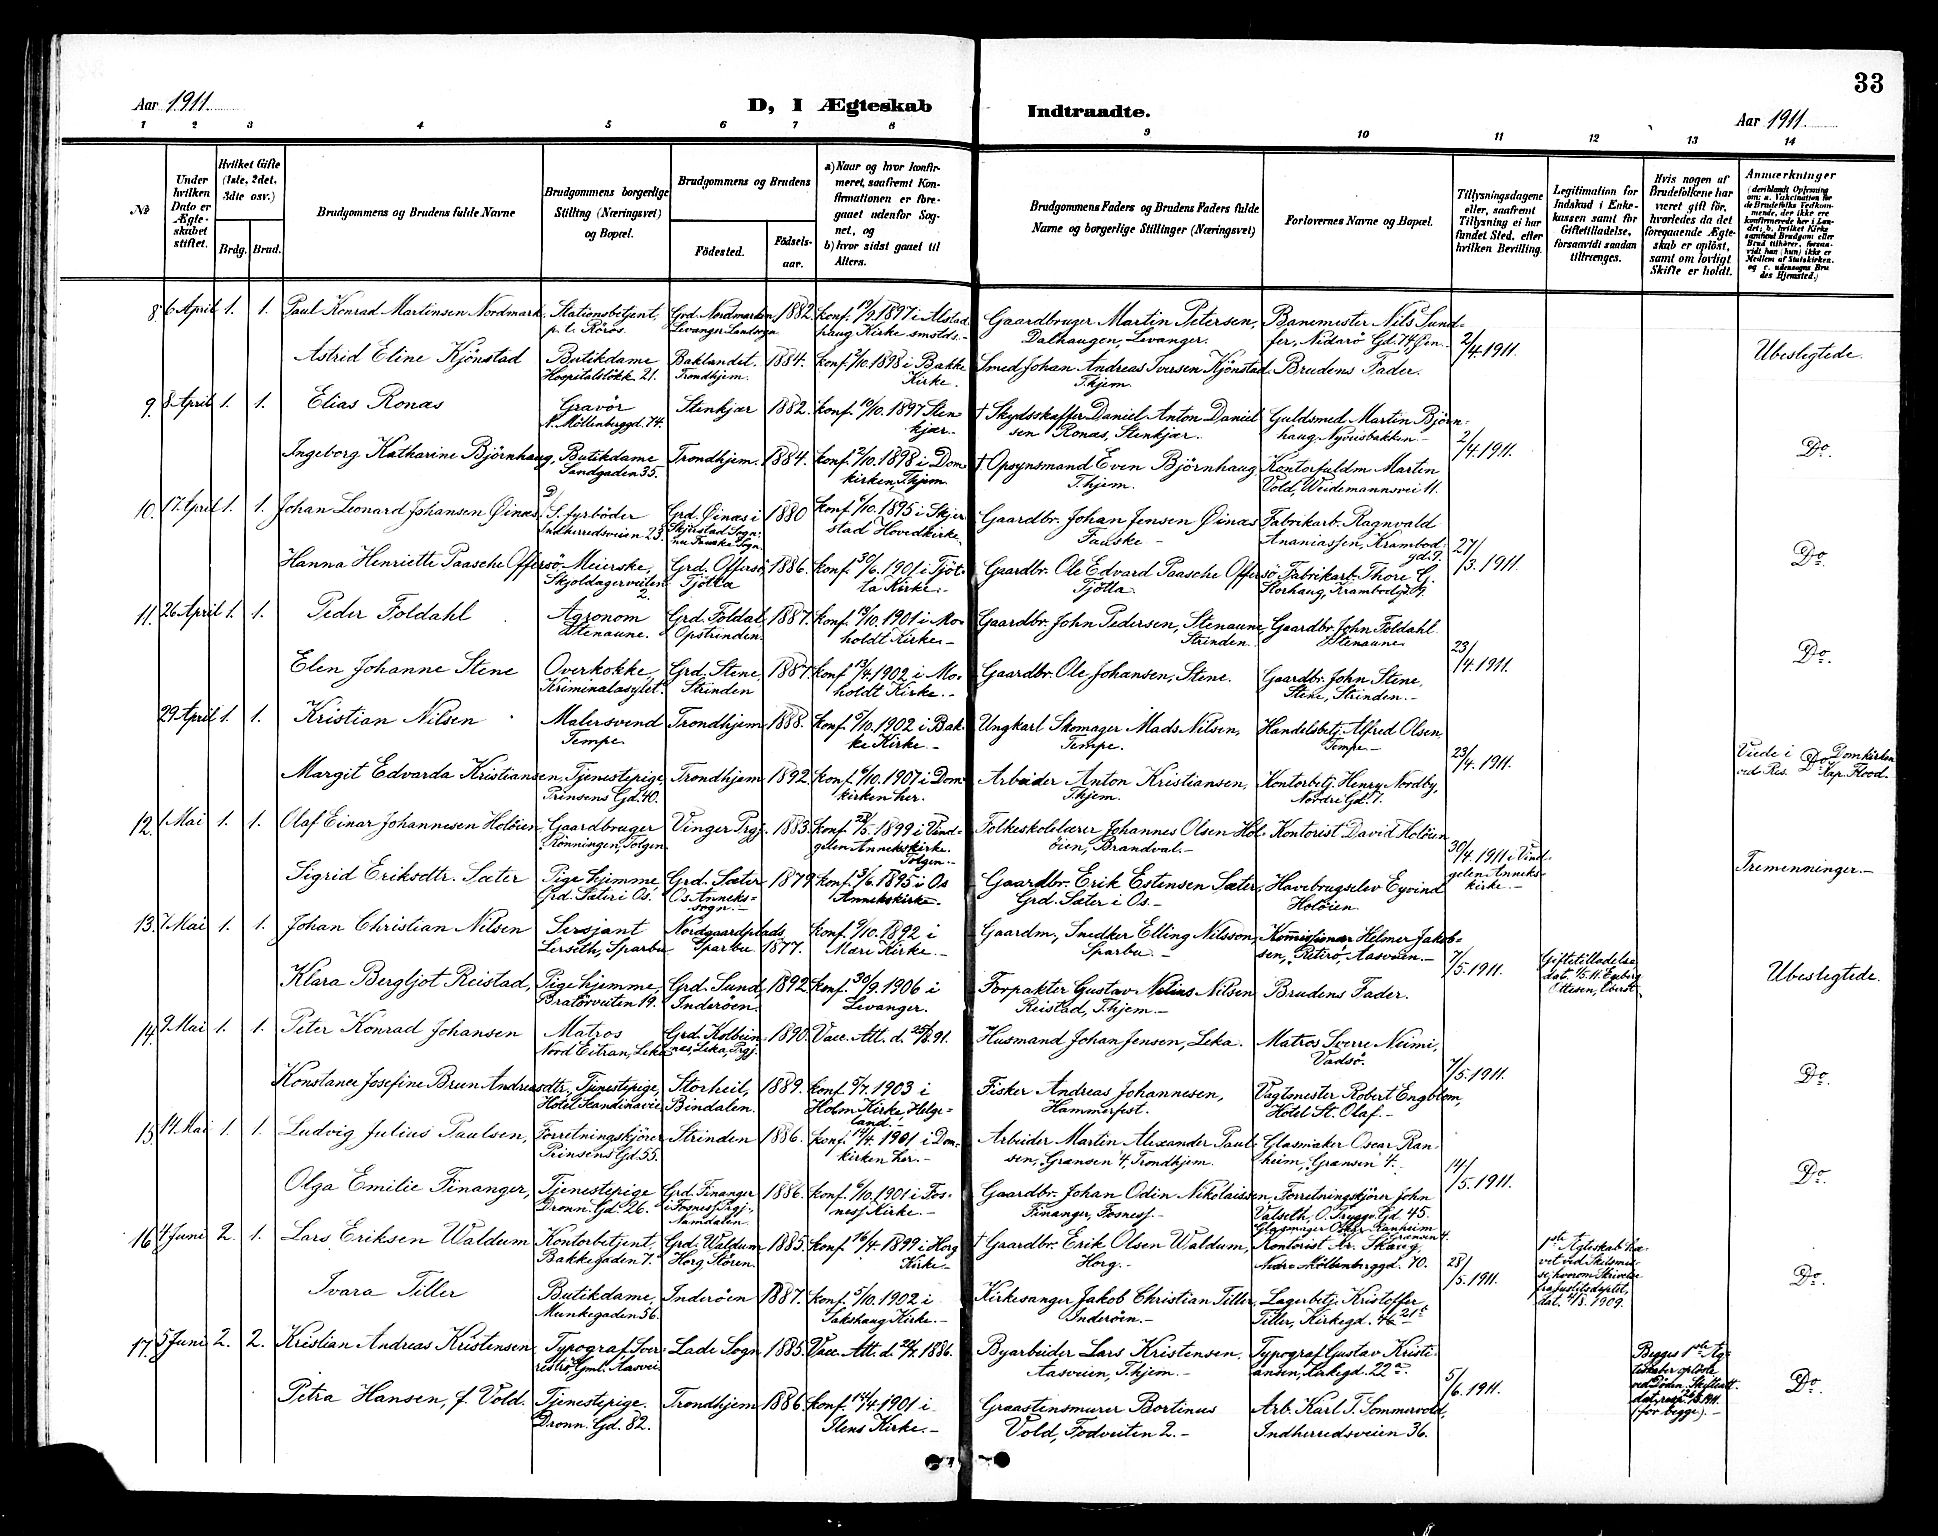 33
Aar 1911.
D, I Ægteskab Indtraadte.
Aar 1911.
1 2 3 4 5 6 7 8 9 10 11 12 13 14
No
Under hvilken Dato er Ægteskabet stiftet.
Hvilket Gifte (1ste, 2det, 3die osv.)
Brdg. Brud.
Brudgommens og Brudens fulde Navne
Brudgommens borgerlige Stilling (Næringsvei) og Bopæl.
Brudgommens og Brudens
Fødested.
Fødselsaar.
a) Naar og hvor konfirmeret, saafremt Konfirmationen er foregaaet udenfor Sognet, og
b) hvor sidst gaaet til Alters.
Brudgommens Faders og Brudens Faders fulde Navne og borgerlige Stillinger (Næringsvei)
Forlovernes Navne og Bopæl.
Tillysningsdagene eller, saafremt Tillysning ei har fundet Sted, efter hvilken Bevilling.
Legitimation for Indskud i Enkekassen samt for Giftetilladelse, forsaavidt saadan tiltrænges.
Hvis nogen af Brudefolkene har været gift før, hvorledes da det foregaaende Ægteskab er opløst, samt om lovligt Skifte er holdt.
Anmærkninger
8. 6 April 1. 1. Paul Konrad Martinsen Nordmark, Stationsbetjent, p. t. Röros. Grd. Nordmarken Levanger Landsogn 1882. konf. 1897 i Alstadhaug Kirke Gaardbruger Martin Petersen, Dalhaugen, Levanger. Banemester Nils Sundfer, Nidarö Gd. 74
Astrid Eline Kjönstad Butikdame Hospitalslökk. 21. Baklandet. Trondhjem. 1884. konf. 2/10. 1898 i Bakke Kirke. Smed Johan Andreas Iversen Kjönstad T.hjem. Brudens Fader. 2/4. 1911. Ubeslegtede.
9. 8 April 1. 1. Elias Ronæs Gravör N. Möllenberggd. 74. Stenkjær 1882. konf. 10/10. 1897 Stenkjær. † Skydsskaffer Daniel Anton Danielsen Ronæs, Stenkjær. Guldsmed Martin Björnhaug,
Ingeborg Katharine Björnhaug, Butikdame Sandgaden 35. Trondhjem. 1884. konf. 2/10. 1898 i Domkirken, T.hjem. † Opsynsmand Even Björnhaug T.hjem. Kontorfuldm Martin Vold, Weidemannsvei 11. 2/4. 1911. Do.
10. 17 April 1. 1. Johan Leonard Johansen Øinæs, S. fyrböder Indherredsveien 23. Grd. Øinæs i Skjerstad Sogn, nu Fauske Sogn. 1880 konf. 6/10. 1895 i Skjerstad Hovedkirke. Gaardbr. Johan Jensen Øinæs Fauske Fabrikarb. Ragnvald Ananiassen, Krambodgd. 9.
Hanna Henriette Paasche Offersö Meierske, Skjoldagerveiten 2. Grd. Offersö, Tjötta 1886. konf. 30/6. 1901 i Tjötta Kirke. Gaardbr. Ole Edvard Paasche Offersö Tjötta. Fabrikarb. Thore G. Storhaug, Krambodgd. 9. 27/3. 1911. Do.
11. 26 April 1. 1. Peder Foldahl Agronom Stenaune. Grd. Foldal Opstrinden. 1887. konf. 13/10. 1901 i Moholdt Kirke. Gaardbr. John Pedersen, Stenaune, Strinden. Gaardbr. John Foldahl Stenaune
Elen Johanne Stene Overkokke, Kriminalasylet. Grd. Stene, Strinden 1887. konf. 13/4. 1902 i Moholdt Kirke. Gaardbr. Ole Johansen, Stene. Gaardbr. John Stene, Stene, Strinden. 23/4. 1911. Do.
29 April 1. 1. Kristian Nilsen Malersvend Tempe. Trondhjem 1888. konf. 5/10. 1902 i Bakke Kirke. Ungkarl Skomager Mads Nilsen, Tempe. Handelsbetj. Alfred Olsen, Tempe.
Margit Edvarda Kristiansen, Tjenestepige, Prinsens Gd. 40. Trondhjem 1892. konf. 6/10. 1907 i Domkirken her. Arbeider Anton Kristiansen, T.hjem. Kontorbetj. Henry Nordby, Nordre Gd. 1. 23/4. 1911. Do. Viede i Domkirken ved Res. Kap. Flood.
12. 1. Mai 1. 1. Olaf Einar Johannesen Holöien Gaardbruger Rönningen, Tolgen Vinger Prgj. 1883. konf. 28/5. 1899 i Vingelen Annekskirke. Tolgen. Folkeskolelærer Johannes Olsen Holöien, Brandval. Kontorist David Holöien
Sigrid Eriksdtr. Sæter Pige hjemme, Grd. Sæter i Os. Grd. Sæter Os Annekssogn. 1879 konf. 3/6. 1895 i Os Annekskirke. Gaardbr. Erik Estensen Sæter, Grd. Sæter i Os. Havebrugselev Eyvind Holöien. 30/4. 1911 i Vingelen Annekskirke. Tremenninger.
13. 7. Mai 1. 1. Johan Christian Nilsen Sersjant Lerseth, Sparbu Nordgaardplads Sparbu 1877. konf. 9/10. 1892 i Mari Kirke. Gaardm., Snedker Elling Nilsson, Sparbu. Kommissionær Helmer Jakobsen, Aasveien.
Klara Bergljot Reistad, Pige hjemme, Bratörveiten 19. Grd. Sund, Inderöen. 1892 konf. 30/9. 1906 i Levanger. Forpakter Gustav Nelius Nilsen Reistad, T.hjem. Brudens Fader. 7/5. 1911. Giftetilladelse dat. 1/5. 11. Ottesen, Oberst. Ubeslegtede.
14. 9. Mai 1. 1. Peter Konrad Johansen Matros Nord Eitran, Leka Grd. Kolbeinnæs, Leka, Prgj. 1890. Vacc. Att. d. 25/8. 91. Husmand Johan Jensen, Leka. Matros Sverre Neimi, Vadsö.
Konstance Josefine Brun Andreasdtr. Tjenestepige, Hotel Skandinavie Storheil, Bindalen. 1889. konf. 5/7. 1903 i Holm Kirke, Helgeland. Fisker Andreas Johannesen, Hammerfest. Vagtmester Robert Engblom, Hotel St. Olaf. 7/5. 1911. Do.
15. 14. Mai 1. 1. Ludvig Julius Paulsen, Forretningskjörer Prinsens Gd. 55. Strinden 1886. konf. 14/4. 1901 i Domkirken her. Arbeider Martin Alexander Paulsen, Grænsen 4, Trondhjem. Glasmaker Oscar Ranheim, Grænsen 4.
Olga Emilie Finanger, Tjenestepige Dronn. Gd. 26. Grd. Finanger i Fosnes Prgj., Namdalen. 1886. konf. 6/10. 1901 i Fosness Kirke. Gaardbr. Johan Odin Nikolaissen, Finanger, Fosness. Forretningskjörer John Valseth, O. Tryggv. Gd. 45. Glasmager Oskar Ranheim Grænsen 4. 14/5. 1911. Do.
16. 4 Juni 2. 1. Lars Eriksen Waldum Kontorbetjent, Bakkegaden 7. Grd. Waldum Horg, Stören. 1885. konf. 16/4. 1899 i Horg Kirke. † Gaardbr. Erik Olsen Waldum, Horg. Kontorist Ar. Skaug, Nedre Möllenberggd. 70.
Ivara Tiller Butikdame, Munkegaden 56. Inderöen 1887. konf. 5/10. 1902 i Sakshaug Kirke. Kirkesanger Jakob Christian Tiller, Inderöen. Lagerbetj. Kristoffer Tiller, Kirkegd. 28/5. 1911. 1ste Ægteskab hævet ved Skilsmisse, hvorom Skrivelse fra Justitsdeptet, dat. 1909. Do.
17. 5 Juni 2. 2. Kristian Andreas Kristensen Typograf Gml. Aasvei Lade Sogn 1885. Vacc. Att. d. 1886. Byarbeider Lars Kristensen, Aasveien, T.hjem. Typograf Gustav Kristiansen, Lakegd. 22
Petra Hansen, f. Vold. Tjenestepige. Dronn. Gd. 82. Trondhjem 1886. konf. 14/4. 1901 i Ilens Kirke. Graastensmurer Bortinus Vold, Fodveiten 2. Arb. Karl T. Sommervold, Indherredsveien 36. 5/6. 1911. Begges 1ste Ægteskaber opløste ved Döden. Skifteatt. (for begge). Do.